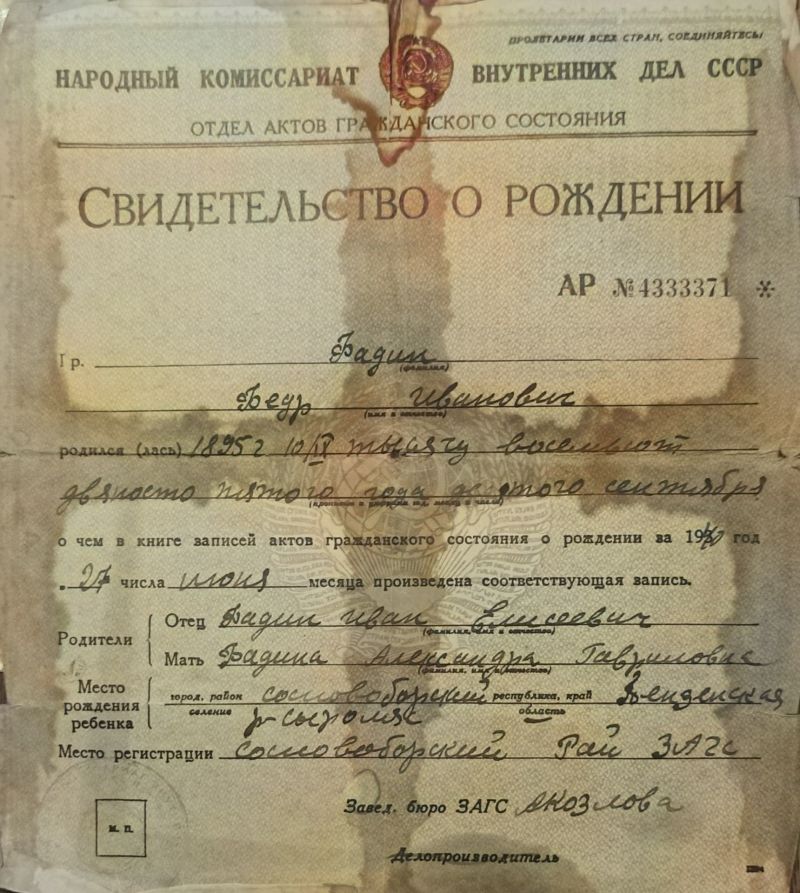 ПРОЛЕТАРИИ ВСЕХ СТРАН, СОЕДИНЯЙТЕСЬ!
НАРОДНЫЙ КОМИССАРИАТ ВНУТРЕННИХ ДЕЛ СССР
ОТДЕЛ АКТОВ ГРАЖДАНСКОГО СОСТОЯНИЯ
СВИДЕТЕЛЬСТВО О РОЖДЕНИИ
АР №4333371 *
Гр. Фадин
(фамилия)
Федр Иванович
(имя и отчество)
родился (лась) 1895 г 10/IX тысячу восемьсот
двяносто пятого года десятого сентября
о чем в книге записей актов гражданского состояния о рождении за 1940 год
27 числа июня месяца произведена соответствующая запись.
Родители
Отец Фадин Иван Елисеевич
(фамилия, имя и отчество)
Мать Фадина Александра Гавриловна
(фамилия, имя и отчество)
Место рождения ребенка
город, район сосновоборский республика, край Пензенская
селение область
Место регистрации сосновоборский Рай ЗАГС
Завед. бюро ЗАГС АКозлова
М. П.
Делопроизводитель